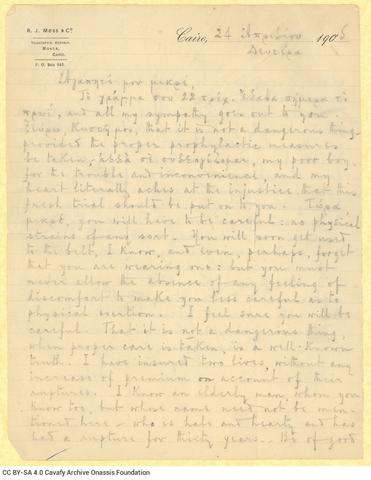 R. J. Moss & Co.
Telegraphic Address,
Mosca,
Cairo.
P. O. Box 545.
Cairo, 24 Ἀπριλίου 1905
Δευτέρα
Ἀγαπητέ μου μικρέ,
Τὸ γράμμα σου 22 τρέχ. ἔλαβα σήμερα τὸ
πρωί, and all my sympathy goes out to you.
Ξεύρω, Κωστῆ μου, that it is not a dangerous thing
provided the proper prophylactic measures
be taken, ἀλλὰ σὲ συλλυποῦμαι, my poor boy
for the trouble and inconvenience, and my
heart literally aches at the injustice that this
fresh trial should be put on to you. Τώρα
μικρέ, you will have to be careful: no physical
strains of any sort. You will soon get used
to the belt, I know, and even, perhaps, forget
that you are wearing one: but you must
never allow the absence of any feeling of
discomfort to make you less careful as to
physical exertion. I feel sure you will be
careful. That it is not a dangerous thing,
when proper care is taken, is a well-known
truth. I have insured two lives, without any
increase of premium on account of their
ruptures. I know an elderly man, whom you
know too, but whose name need not be men-
tioned here – who is hale and hearty and has
had a rupture for thirty years. Be of good
CC BY-SA 4.0 Cavafy Archive Onassis Foundation